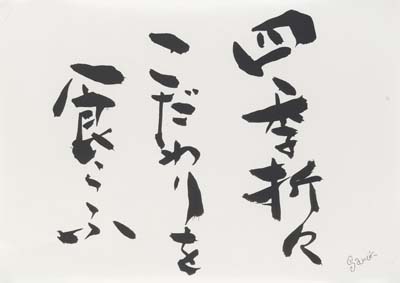 四季折々
こだわりを
食らふ